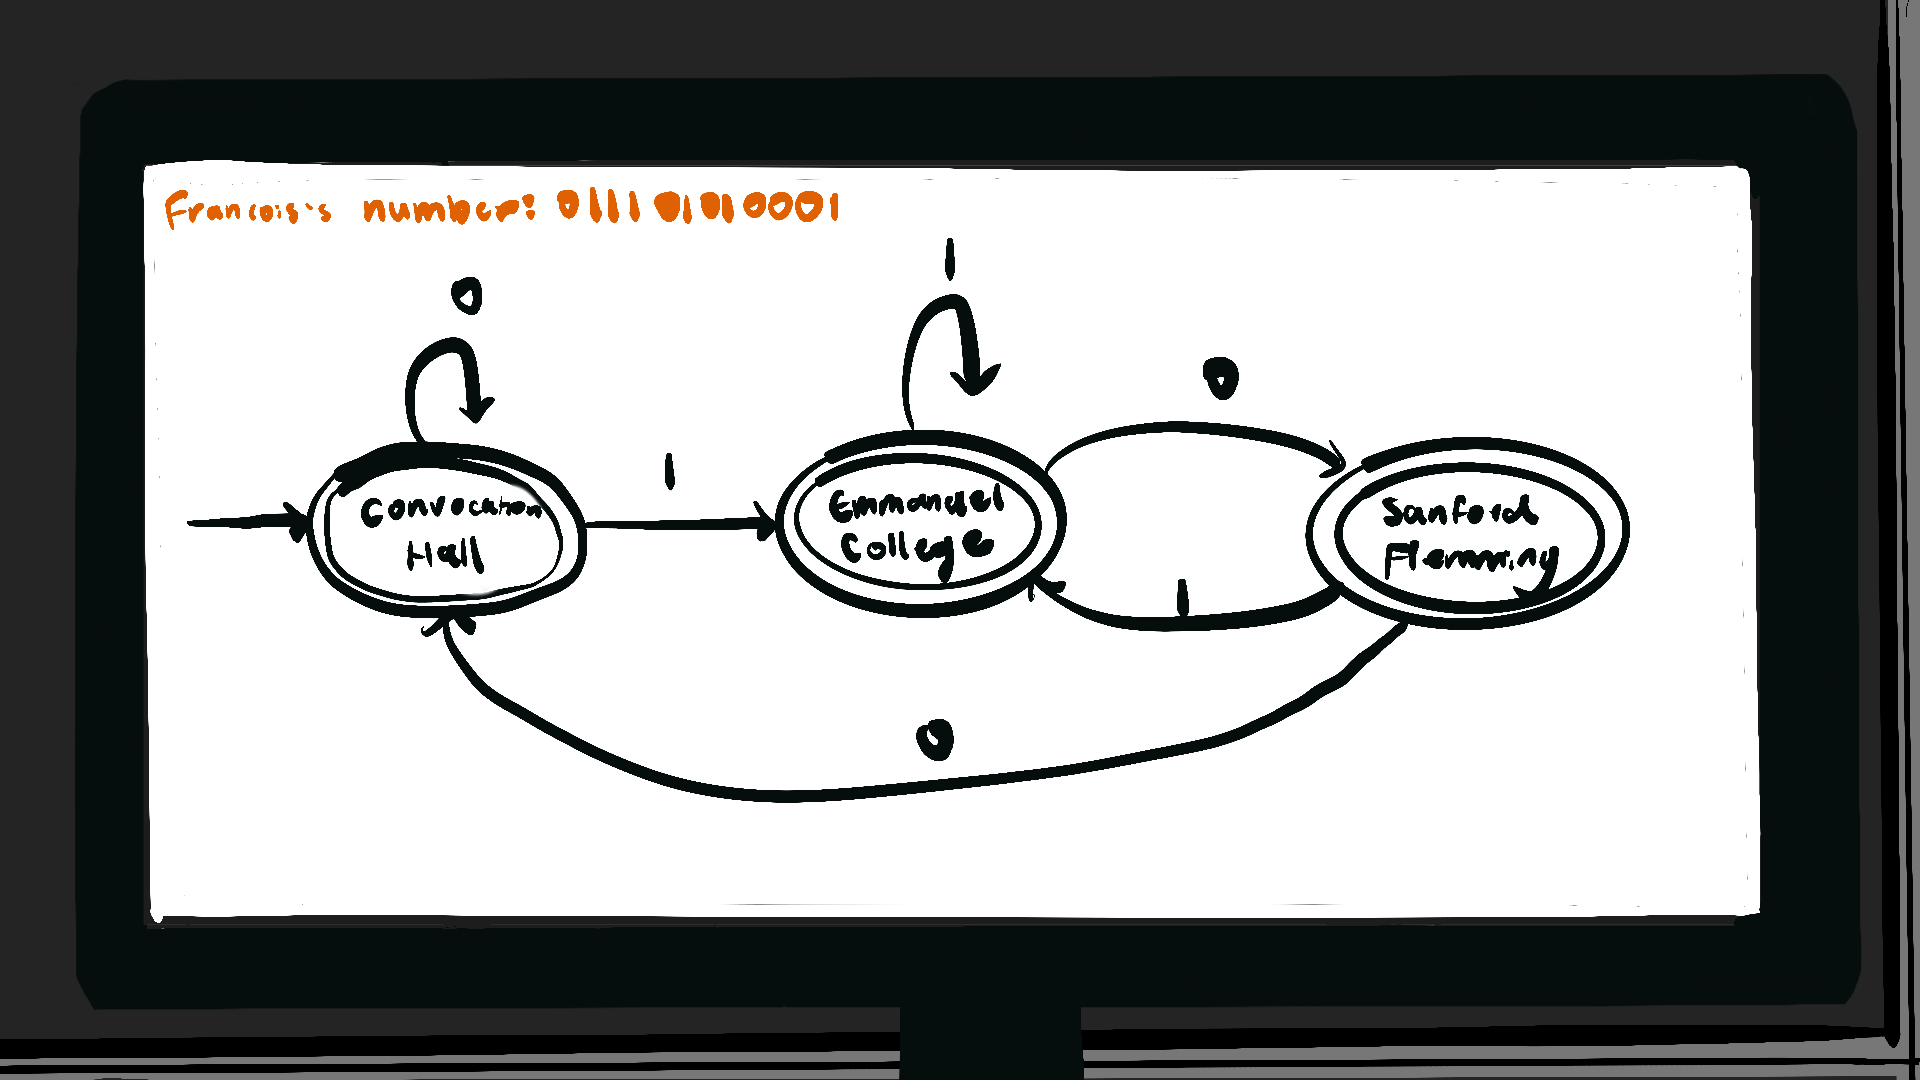 Francois's number: 011101010001
0
1
0
1
Convocation
Hall
Emmanuel
College
Sanford
Flemming
1
0